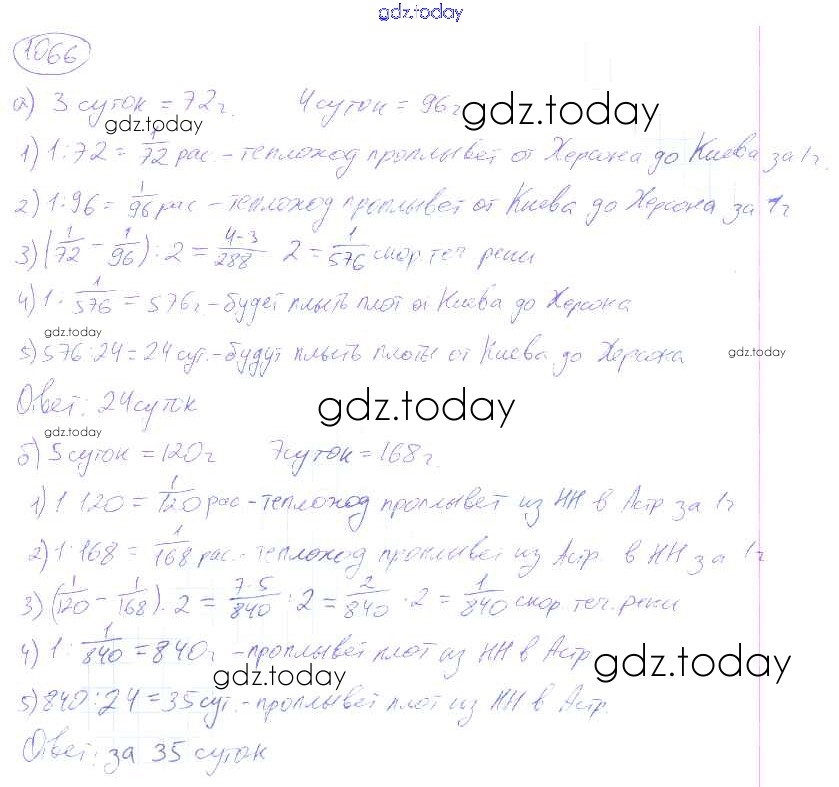 gdz.today
1066
а) 3 суток = 72 г. 4 суток = 96 г gdz.today
gdz.today
1) 1:72 = 1/72 рас. - теплоход проплывет от Херсона до Киева за 1 г.
2) 1:96 = 1/96 рас - теплоход проплывет от Киева до Херсона за 1 г
3) (1/72 - 1/96) : 2 = 4-3/288 2 = 1/576 скор. теч реки
4) 1 · 1/576 = 576 г. - будет плыть плот от Киева до Херсона
gdz.today
5) 576:24 = 24 сут. - будут плыть плоты от Киева до Херсона gdz.today
Ответ: 24 суток gdz.today
gdz.today
б) 5 суток = 120 г 7 суток = 168 г.
1) 1 120 = 1/120 рас - теплоход проплывет из НН в Астр за 1 г
2) 1:168 = 1/168 рас. - теплоход проплывет из Астр. в НН за 1 г
3) (1/120 - 1/168) · 2 = 7-5/840 : 2 = 2/840 · 2 = 1/840 скор. теч. реки
4) 1 : 1/840 = 840 г - проплывёт плот из НН в Астр gdz.today
gdz.today
5) 840:24 = 35 сут. - проплывет плот из НН в Астр.
Ответ: за 35 суток